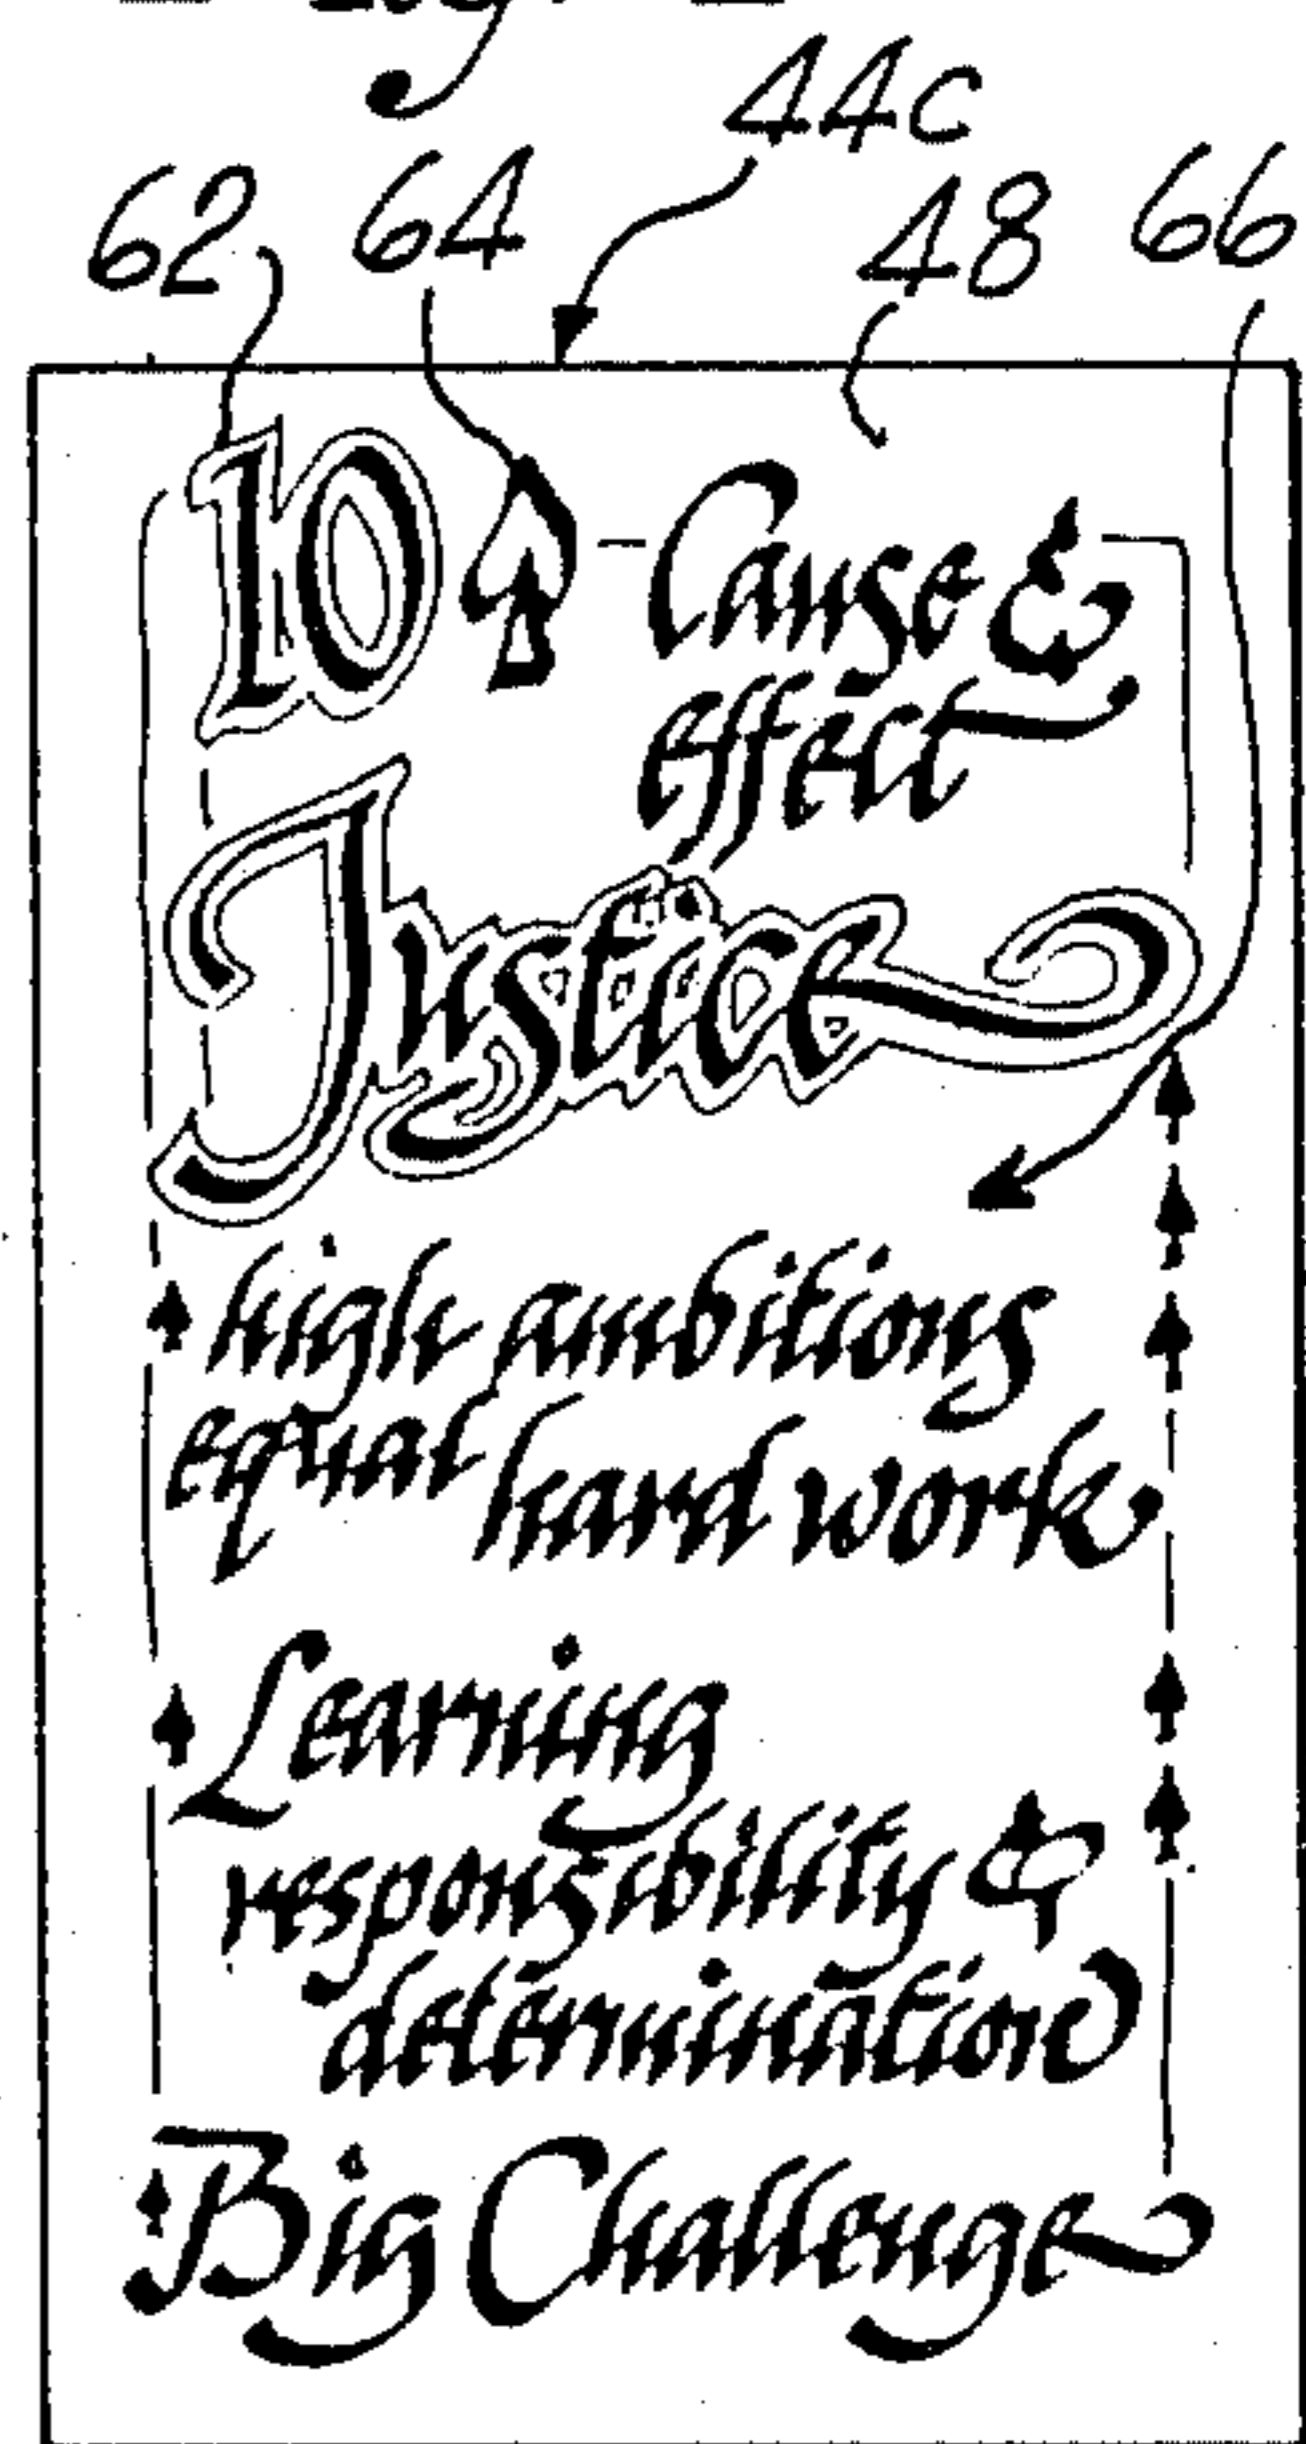 44c
62 64 48 66
10 Cause &
effect
Justice
high ambitions
equal hard work
Learning
responsibility &
determination
Big Challenge